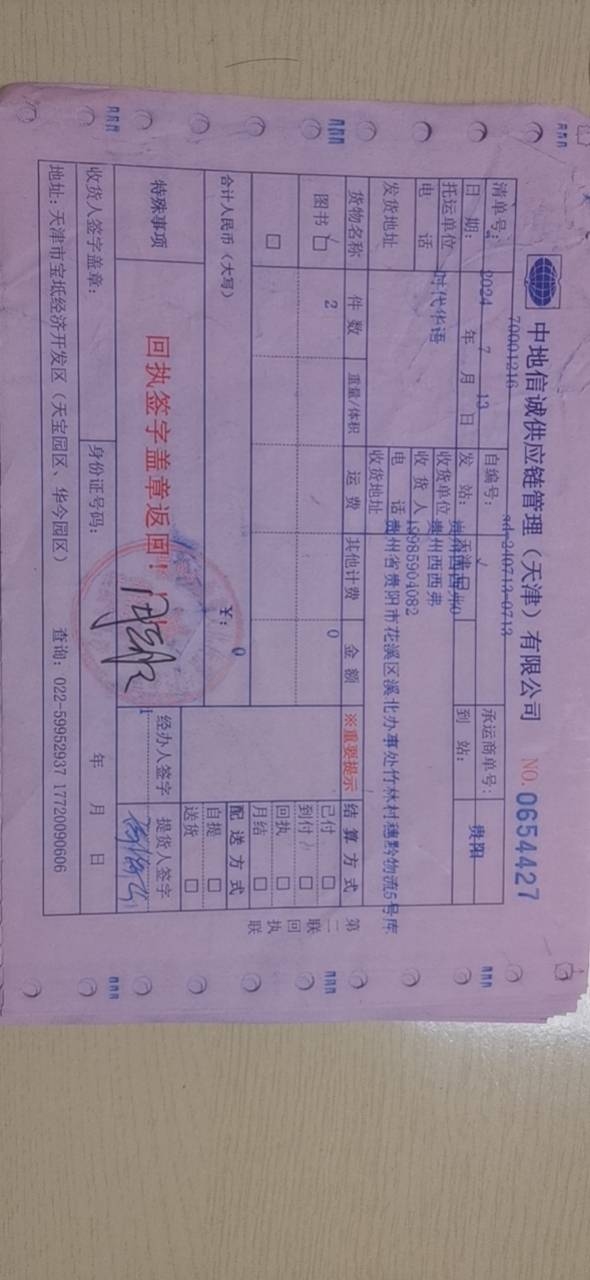 中地信诚供应链管理（天津）有限公司 NO.0654427
70001216 sd-240713-0713
清单号： 自编号： 承运商单号：
日 期： 2024 年 7 月 13 日 发 站： 到 站： 贵阳
托运单位 时代华语 收货单位 贵州西西弗
电 话 收 货 人
发货地址 电 话 19985904082
收货地址 贵州省贵阳市花溪区溪北办事处竹林村穗黔物流5号库
货物名称 件 数 重量/体积 运 费 其他计费 金 额 ※重要提示 结 算 方 式
图书 2 0 已付
到付
回执
合计人民币（大写） ￥： 0 月结
配 送 方 式
自提
送货
特殊事项 回执签字盖章返回！ 经办人签字 提货人签字
收货人签字盖章： 身份证号码： 年 月 日
地址：天津市宝坻经济开发区（天宝园区、华今园区） 查询：022-59952937 17720090606
第二联 回执联